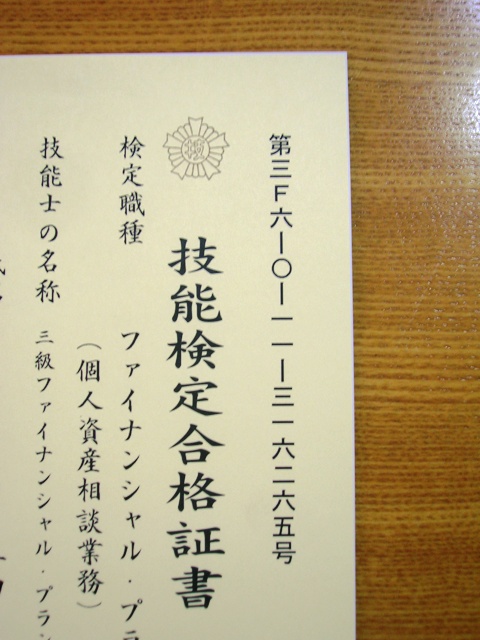 第三F六一〇一一一一三一六二六五号
技能検定合格証書
検定職種 ファイナンシャル・プラ
（個人資産相談業務）
技能士の名称 三級ファイナンシャル・プラン